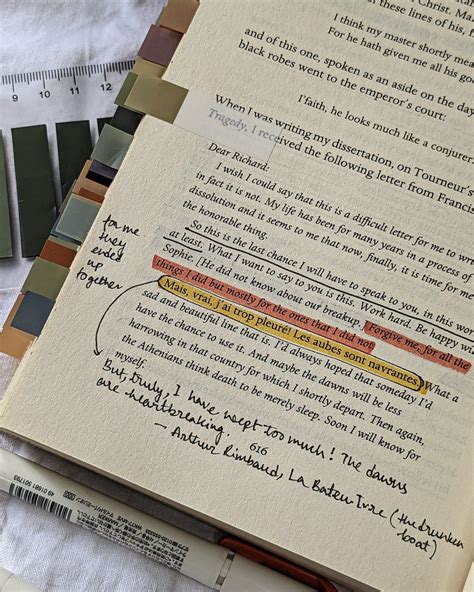 Christ. Ma
of these lines of his,
I think my master shortly mea
For he hath given me all his goo
and of this one, spoken as an aside on the day
black robes went to the emperor's court:
I'faith, he looks much like a conjure
When I was writing my dissertation, on Tourneur's
Tragedy, I received the following letter from Francis
Dear Richard,
I wish I could say that this is a difficult letter for me to wr
in fact it is not. My life has been for many years in a process o
dissolution and it seems to me that now, finally, it is time for m
the honorable thing.
So this is the last chance I will have to speak to you, in this wo
at least. What I want to say to you is this. Work hard. Be happy wi
Sophie. [He did not know about our breakup.] Forgive me, for all the
things I did but mostly for the ones that I did not.
Mais, vrai, j'ai trop pleuré! Les aubes sont navrantes. What a
sad and beautiful line that is. I'd always hoped that someday I'd
have the chance to use it. And maybe the dawns will be less
harrowing in that country for which I shortly depart. Then again,
the Athenians think death to be merely sleep. Soon I will know for
myself.
616
for me
they
ended
up
together
But, truly, I have wept too much! The dawns
are heartbreaking.
– Arthur Rimbaud, La Bateu Ivre (the drunken
boat)
9 10 11 12